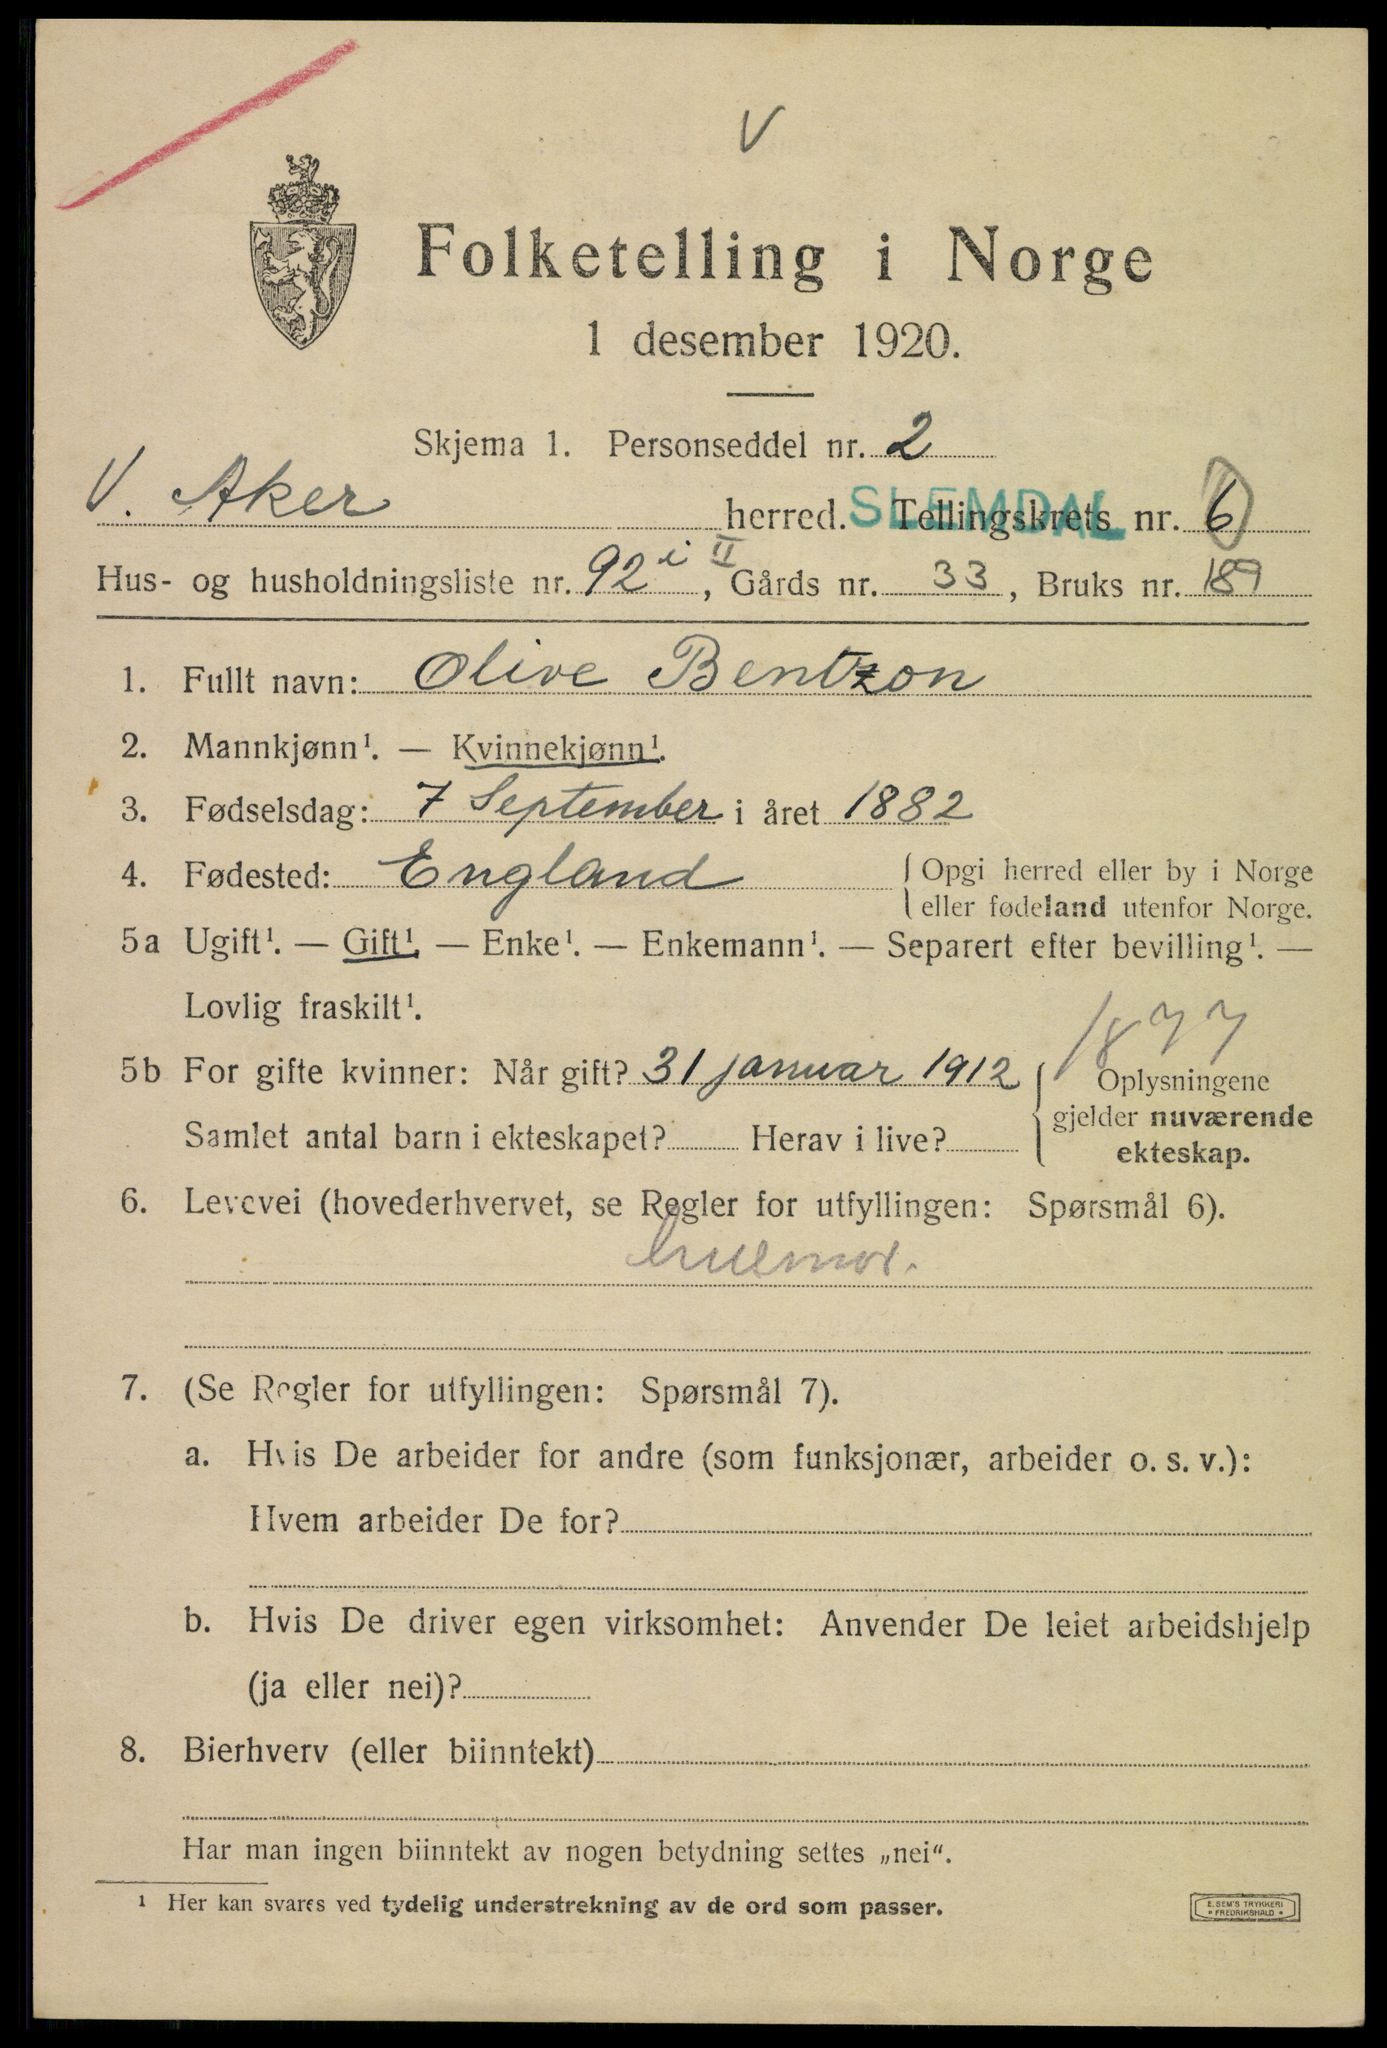 V
Folketelling i Norge
1 desember 1920.
Skjema 1. Personseddel nr. 2
V. Aker herred. SLEMDAL Tellingskrets nr. 6
Hus- og husholdningsliste nr. 92 i II, Gårds nr. 33, Bruks nr. 189
1. Fullt navn: Olive Bentzon
2. Mannkjønn¹. — Kvinnekjønn¹.
3. Fødselsdag: 7 September i året 1882
4. Fødested: England { Opgi herred eller by i Norge
eller fødeland utenfor Norge.
5a Ugift¹. — Gift¹. — Enke¹. — Enkemann¹. — Separert efter bevilling¹. —
Lovlig fraskilt¹.
1877
5b For gifte kvinner: Når gift? 31 januar 1912 { Oplysningene
gjelder nuværende
Samlet antal barn i ekteskapet? Herav i live?
ekteskap.
6. Levevei (hovederhvervet, se Regler for utfyllingen: Spørsmål 6).
husmor.
7. (Se Regler for utfyllingen: Spørsmål 7).
a. Hvis De arbeider for andre (som funksjonær, arbeider o. s. v.):
Hvem arbeider De for?
b. Hvis De driver egen virksomhet: Anvender De leiet arbeidshjelp
(ja eller nei)?
8. Bierhverv (eller biinntekt)
Har man ingen biinntekt av nogen betydning settes „nei“.
¹ Her kan svares ved tydelig understrekning av de ord som passer.
E. SEM'S TRYKKERI
FREDRIKSHALD